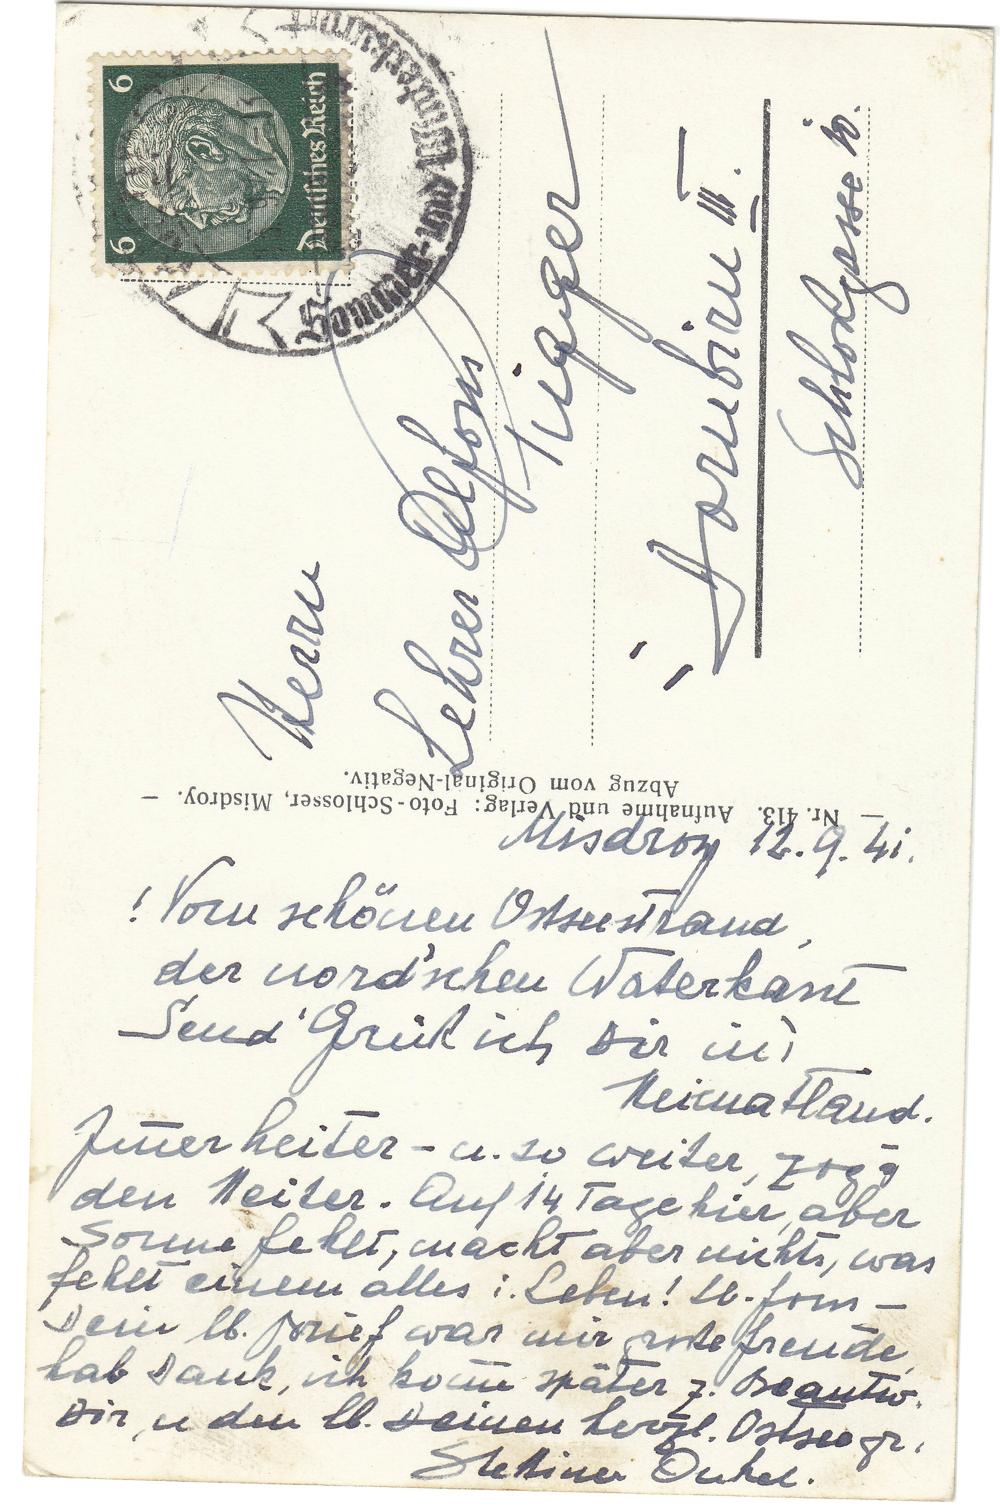 Misdroy 12.9.41.
! Vom schönen Ostseestrand,
der nord'schen Waterkant
Send' Grüß ich Dir in's
Heimatland.
Immer heiter – u. so weiter,
den Heiter. Auf 14 Tage hier, aber
Sonne fehlt, macht aber nichts, was
fehlt einem alles i. Leben! Lb. Fons –
Dein lb. Brief war mir große Freude,
hab Dank, ich komm später z. Beantw.
Dir, u den lb. Deinen herzl. Ostsee gr.
Stettiner Onkel.
— Nr. 413. Aufnahme und Verlag: Foto-Schlosser, Misdroy. —
Abzug vom Original-Negativ.
Herrn
Lehrer Alfons
Dornbirn III.
6 Deutsches Reich 6
Sommer- und Winterkurort